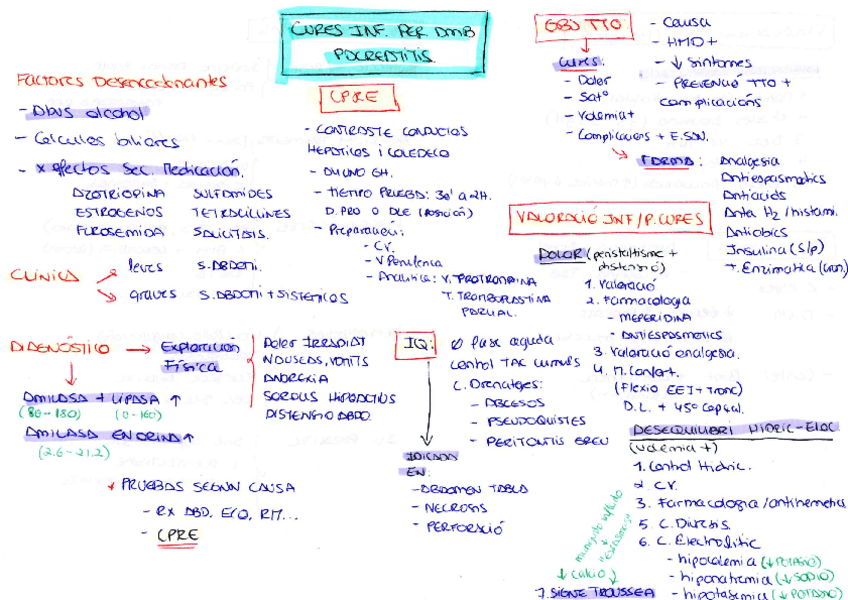 CURES INF. PER DMB
PQCREDTITIS.
Factores Desencadenantes
- Abús alcohol
- Cálculos biliares
- x efectos Sec. Medicación.
AZOTRIOPINA SULFAMIDES
ESTROGENOS TETRACICLINES
FUROSEMIDA SALICILATS.
CLÍNICA
leves S. ABDOTI.
graves S. ABDOTI + SISTETICOS
DIAGNÓSTICO → Exploración
Física
DOLOR IRRADIAT
NÀUSEAS, VÒMITS
ANOREXIA
SOROLLS HIPOACTIUS
DISTENSIÓ ABDO.
AMILASA + LIPASA ↑
(80-180) (0-160)
AMILASA EN ORINA ↑
(2.6-21.2)
* PRUEBAS SEGÚN CAUSA
- RX ABD, ECO, RM...
- CPRE
CPRE
- CONTRASTE CONDUCTOS
HEPÁTICOS I COLEDECO
- DEJUNO 6H.
- TIEMPO PRUEBA: 30' a 2H.
D. PRO O DLE (POSICIÓN)
- Preparación:
- CV.
- V Periferica
- Analítica: V. PROTROMBINA
T. TROMBOPLASTINA
PARCIAL.
IQ: Ø fase aguda
Control TAC CURURES
C. Drenatges:
- ABCESOS
- PSEUDOQUISTES
- PERITONITIS GREU
INDICADA
EN:
- ABDOMEN TABLA
- NECROSIS
- PERFORACIÓ
OBJ TTO
- Causa
- HMD +
- ↓ Síntomes
- PREVENCIÓ TTO +
Complicacións
CURES:
- Dolor
- Satº
- Volemia +
- Complicacions + E. SDN.
FARMA: Analgesia
Antiespasmòtics
Antiàcids
Anta H2 / histami.
Antiobics
Insulina (S/p)
T. Enzimàtica (cron)
VALORACIÓ INF / P. CURES
DOLOR (peristaltisme +
distensió)
1. Valoració
2. Farmacologia
- MEPERIDINA
- ANTIESPASMOTICS
3. Valoració analgesia.
4. M. Confort.
(Flexio EEI + TRONC)
D.L. + 45º Capçal.
DESEQUILIBRI HIDRIC-ELEC
(Volemia +)
1. Control Hidric.
2. CV.
3. Farmacologia / antihemetics
5. C. Diuresis.
6. C. Electrolitic
- hipocalemia (↓ POTASIO)
- hiponatremia (↓ SODIO)
- hipotasemia (↓ POTASIO)
7. SIGNE TROUSSEA
↓ Calcio
manguito inflado
"espasmos"